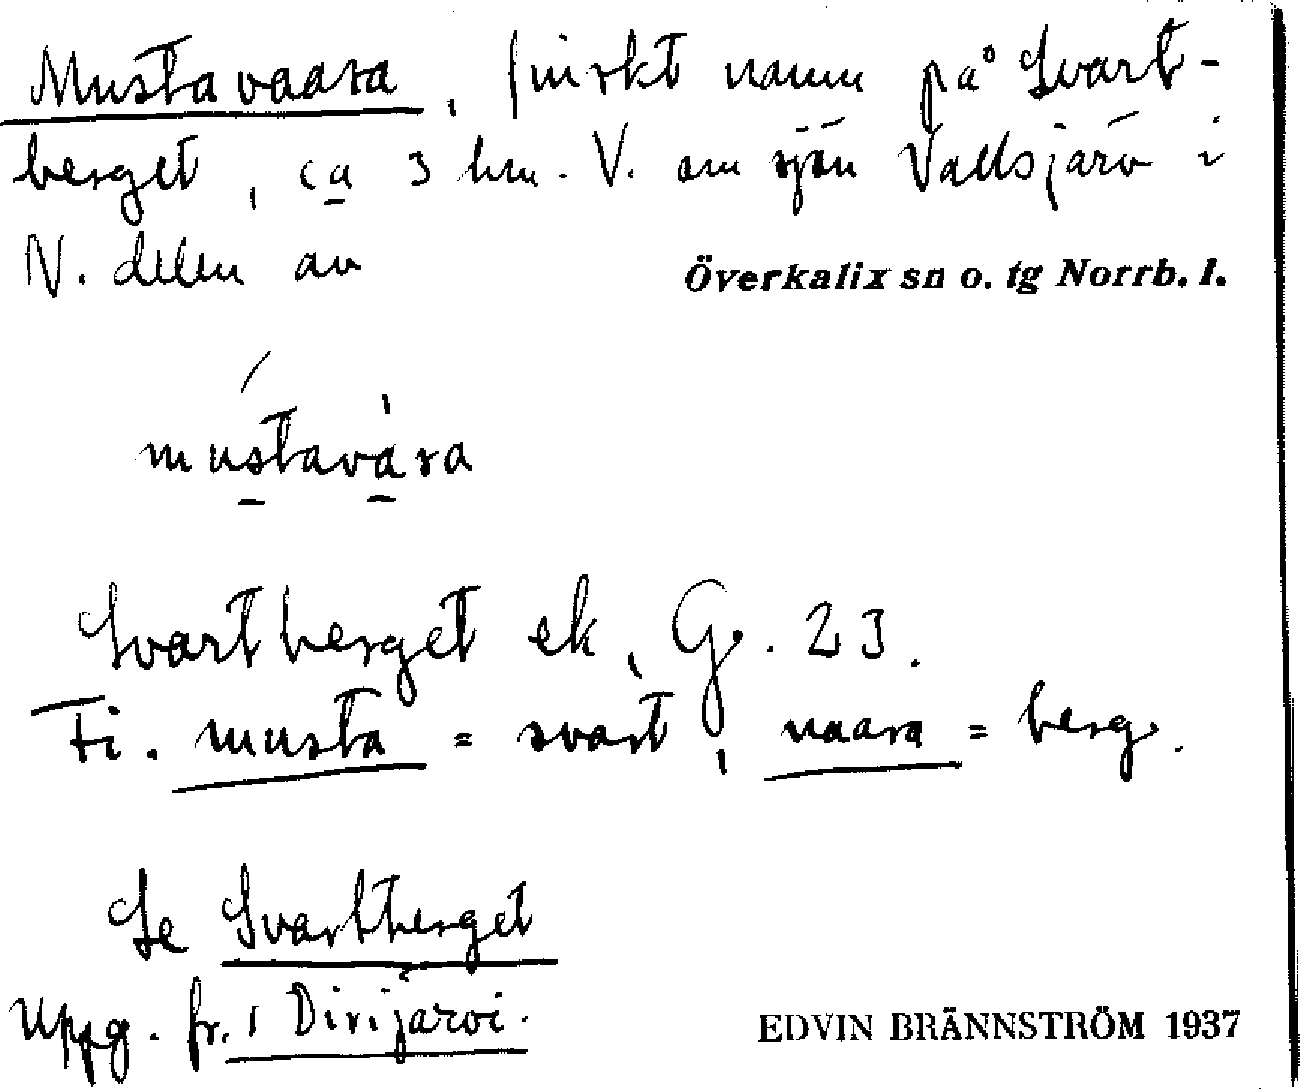 Mustavaara, finskt namn på Svart-
berget, ca 3 km. V. om sjön Vallsjärv i
N. delen av Överkalix sn o. tg Norrb. l.
mustavara
Svartberget ek, G. 23.
Fi. musta = svart, vaara = berg.
Se Svartberget
Uppg. fr. i Dirijärvi.
EDVIN BRÄNNSTRÖM 1937